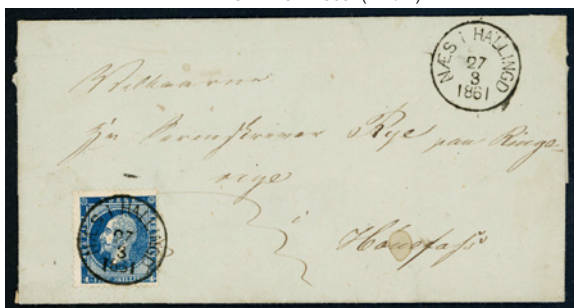 NÆS I HALLINGD
27
3
1861
Velbaarne
Hr Sorenskriver Rye paa Ringe-
rige
i Hønefoss
NÆS I HALLINGD
27
3
1861